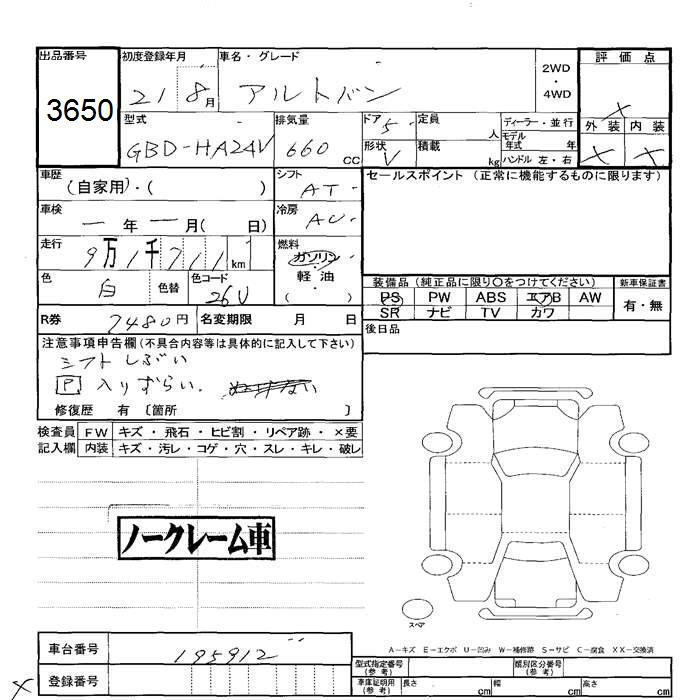 出品番号 初度登録年月 車名・グレード 2WD 4WD 評価点
3650 21 8月 アルトバン ×
外装 内装
× ×
型式 排気量 ドア 定員 人 ディーラー・並行
GBD-HA24V 660 CC 5 形状 V 積載 kg モデル年式 年 ハンドル 左・右
車歴 (自家用)・( ) シフト AT セールスポイント (正常に機能するものに限ります)
車検 一年一月( 日) 冷房 AC
走行 9万1千711km 燃料 ガソリン 軽油 ( )
色 白 色替 色コード 26U
装備品 (純正品に限り○をつけてください) 新車保証書
PS PW ABS エアB AW 有・無
SR ナビ TV カワ
R券 7480円 名変期限 月 日 後日品
注意事項申告欄 (不具合内容等は具体的に記入して下さい)
シフトしぶい
P 入りずらい.
修復歴 有 [箇所 ]
検査員 FW キズ・飛石・ヒビ割・リペア跡・×要
記入欄 内装 キズ・汚レ・コゲ・穴・スレ・キレ・破レ
ノークレーム車
スペア
A-キズ E-エクボ U-凹み W-補修跡 S-サビ C-腐食 XX-交換済
車台番号 195912
× 登録番号
型式指定番号 (参考) 類別区分番号 (参考)
車庫証明用 (参考) 長さ cm 幅 cm 高さ cm